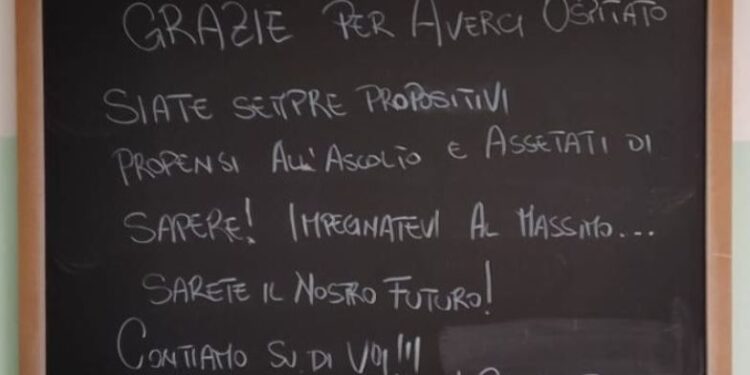 GRAZIE PER AVERCI OSPITATO
SIATE SEMPRE PROPOSITIVI
PROPENSI ALL'ASCOLTO E ASSETATI DI
SAPERE! IMPEGNATEVI AL MASSIMO...
SARETE IL NOSTRO FUTURO!
CONTIAMO SU DI VOI!!!